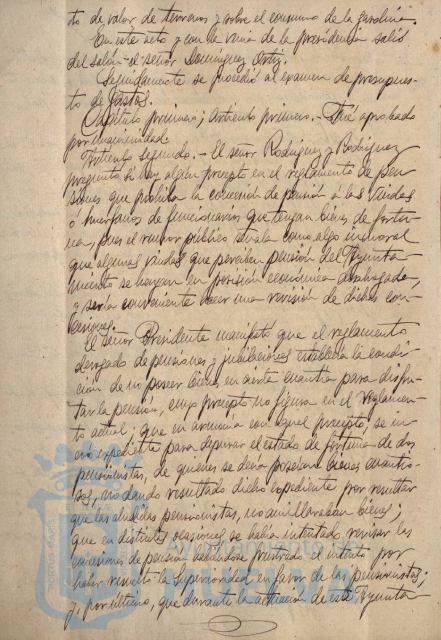 to de valor de terrenos y sobre el consumo de la gasolina.
En este acto y con la venia de la presidencia salió
del salón el señor Domínguez Ortiz.
Seguidamente se procedió al examen de presupues-
to de Gastos.
Capítulo primero; Artículo primero.- Fué aprobado
por unanimidad.
Artículo segundo.- El señor Rodríguez y Rodríguez
pregunta si hay algún precepto en el reglamento de pen-
siones que prohiba la concesión de pensión á las viudas
ó huérfanos de funcionarios que tengan bienes de fortu-
na, pues el rumor público señala como algo inmoral
que algunas viudas que perciben pensión del Ayunta-
miento se hayan en posición económica desahogada,
y sería conveniente hacer una revisión de dichas con-
cesiones.
El señor Presidente manifestó que el reglamento
derogado de pensiones y jubilaciones establecía la condi-
ción de no poseer bienes en cierta cuantía para disfru-
tar la pensión, cuyo precepto no figura en el reglamen-
to actual; que en armonía con aquel precepto, se in-
coó expediente para depurar el estado de fortuna de dos
pensionistas, de quienes se decía poseían bienes cuantio-
sos, no dando resultado dicho expediente por resultar
que las aludidas pensionistas, no amillaraban bienes;
que en distintas ocasiones se había intentado revisar las
concesiones de pensión habiéndose frustrado el intento por
haber resuelto la Superioridad en favor de las pensionistas;
y, por último, que durante la actuación de este Ayunta-